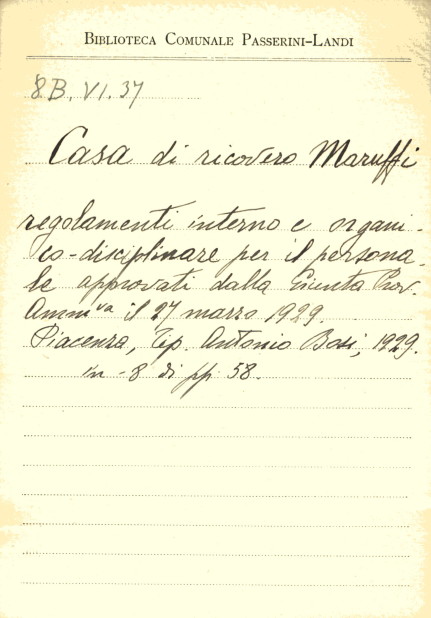 BIBLIOTECA COMUNALE PASSERINI-LANDI
8B. VI. 37
Casa di ricovero Maruffi
regolamenti interno e organi-
co-disciplinare per il persona-
le approvati dalla Giunta Prov.
Amm.va il 27 marzo 1929.
Piacenza, Tip. Antonio Bosi, 1929.
in -8 di pp 58.